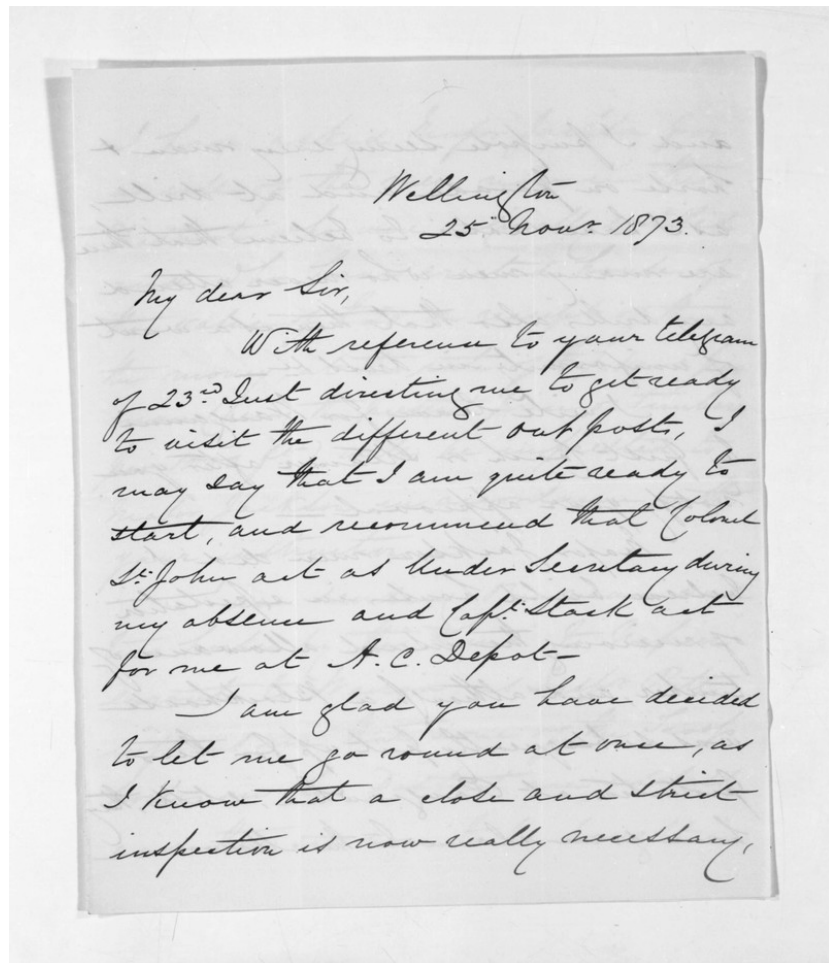 Wellington
25 Novr. 1873.
My dear Sir,
With reference to your telegram
of 23rd Inst directing me to get ready
to visit the different out posts, I
may say that I am quite ready to
start, and recommend that Colonel
St. John act as Under Secretary during
my absence and Capt. Stack act
for me at A. C. Depot—
I am glad you have decided
to let me go round at once, as
I know that a close and strict
inspection is now really necessary,